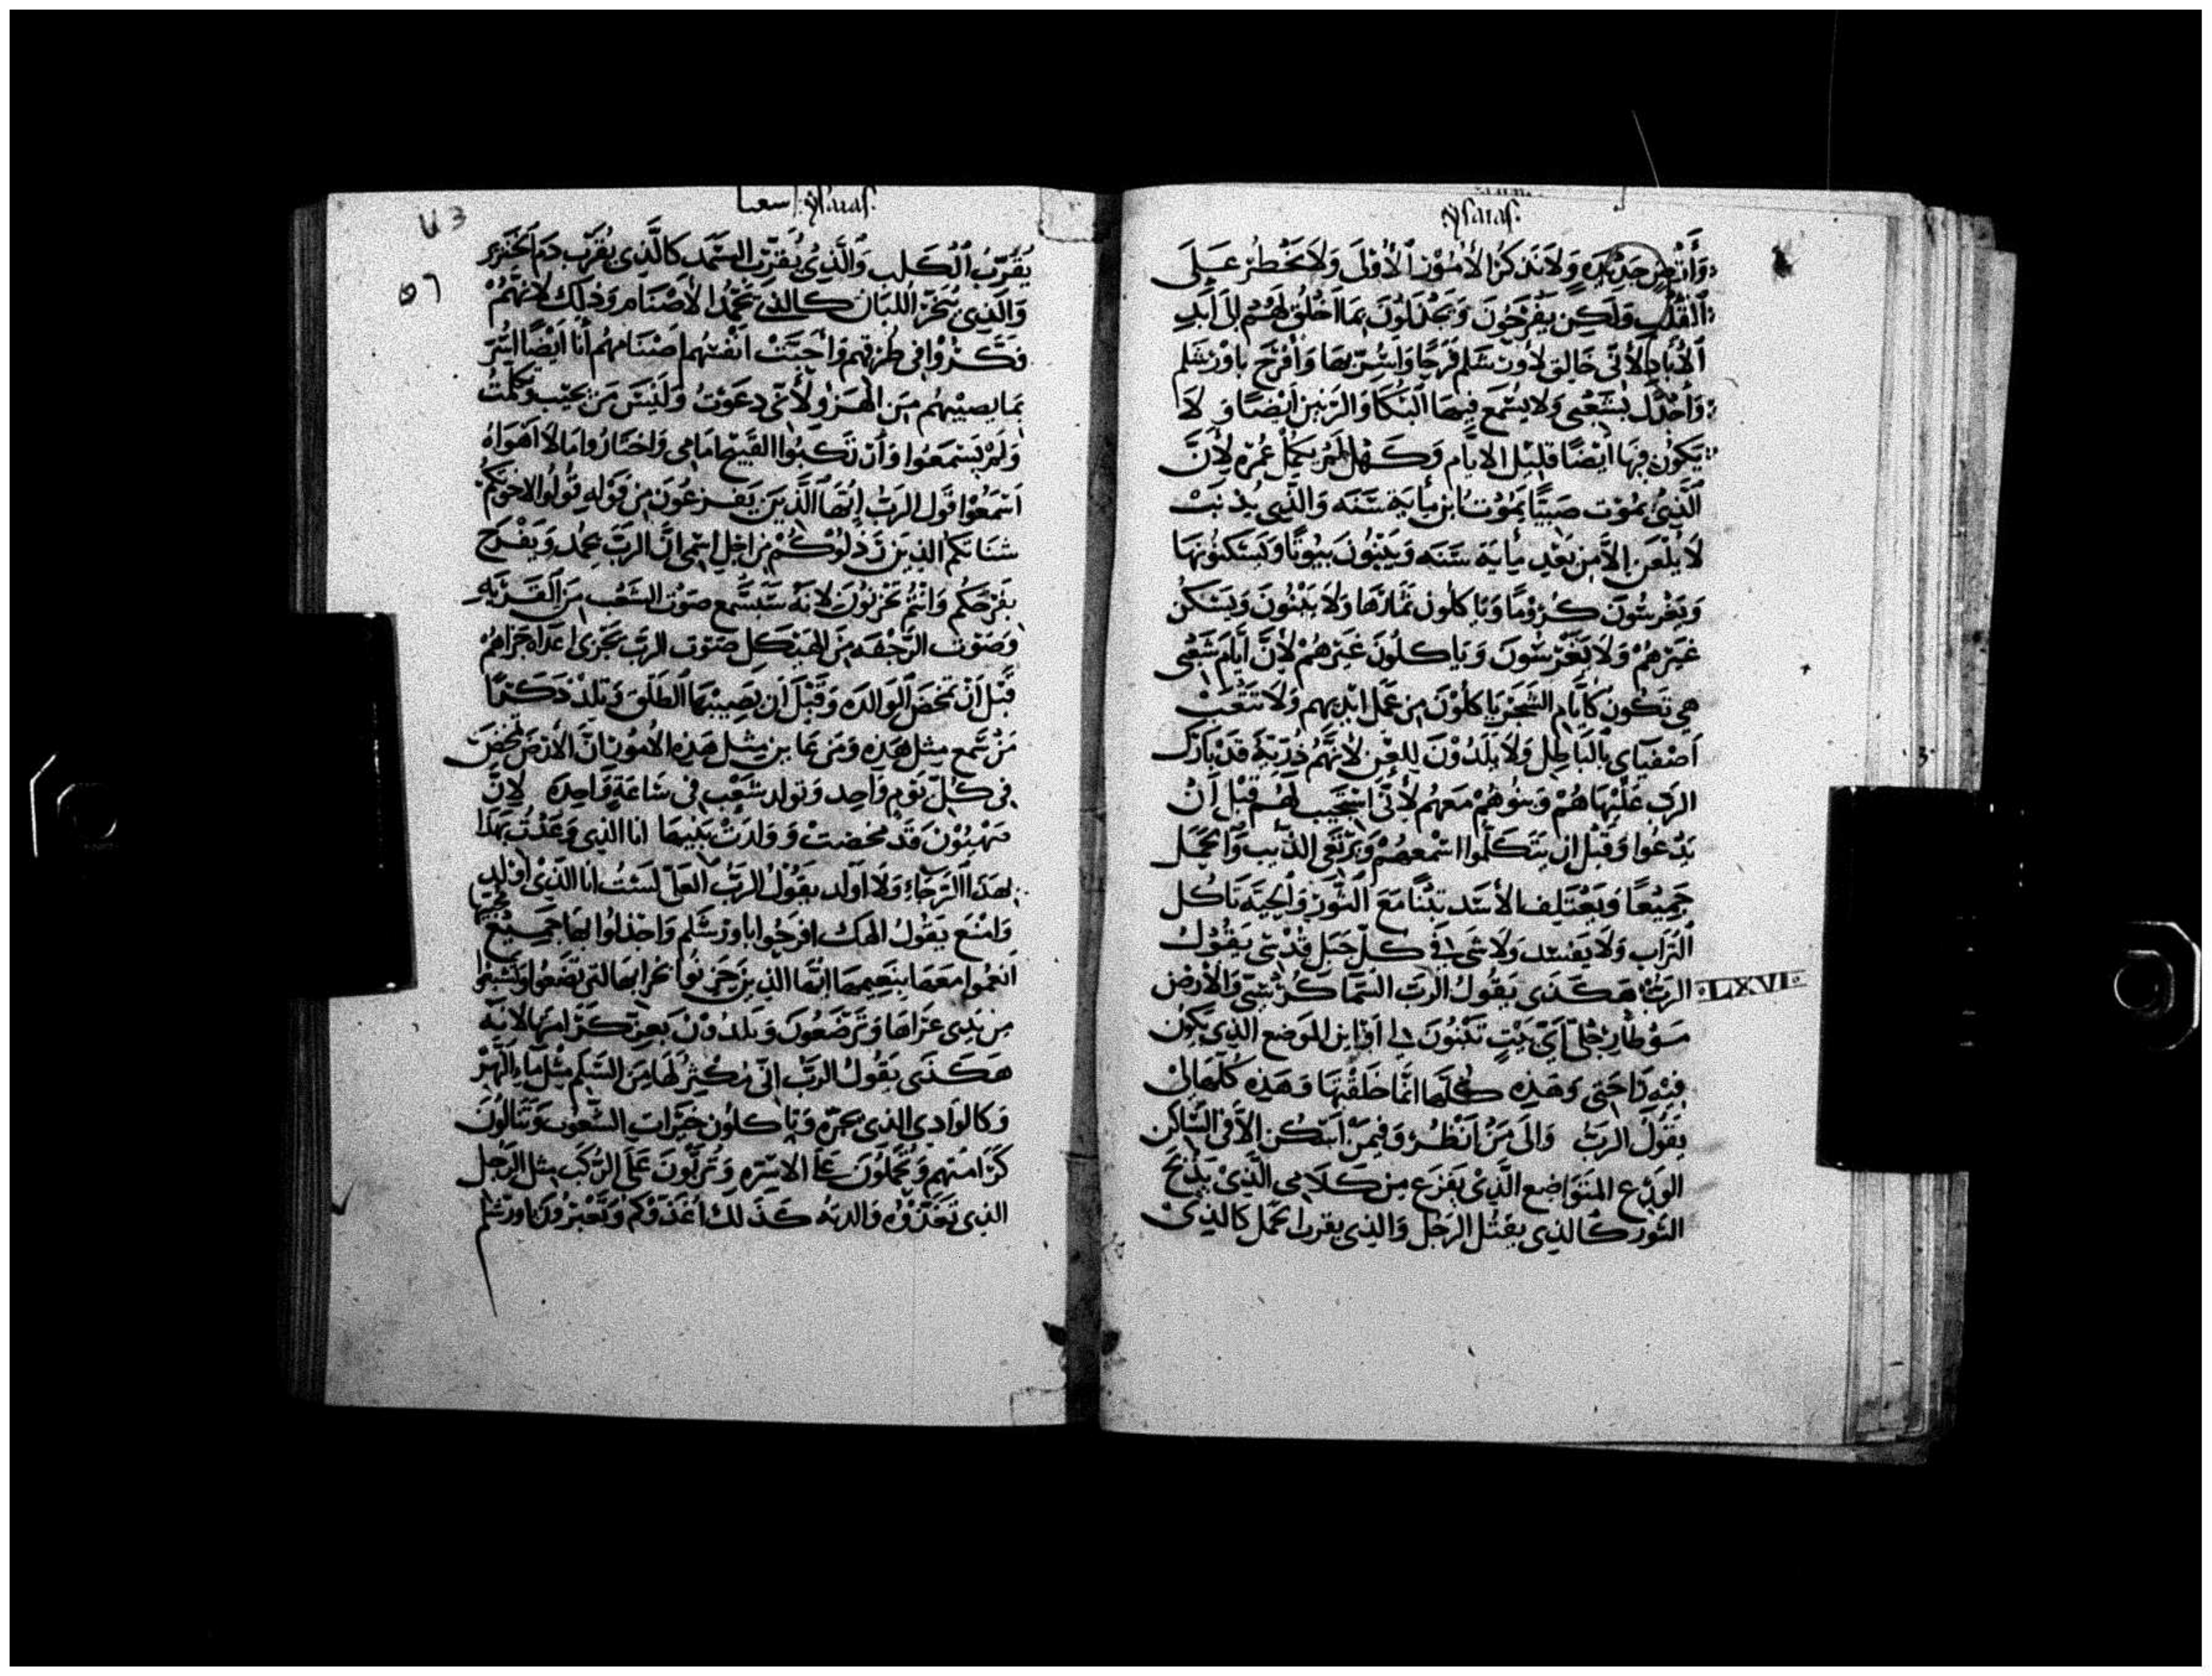 ysaias.
وَأَرْض جَدِيْدَه وَلَا تَذكرُ الأُمُوْر الأُوْلَى وَلَا تَخْطُر عَلَى
القُلْب وَلَكِن يَفْرَحُونَ وَيَجْذَلُوْنَ بمَا اَخْلُق لَهُمْ اِلَى اَبَدِ
الأبَاد لأنّى خَالِق لأورشَلِم فَرَحًا وَاسُرّ بهَا وَافْرَح باورْشَلم
وَأجْذَل بِشَعْبِى وَلا يُسْمَع فِيهَا البُكَا وَالرَنِين اَيْضًا وَ لَا
يَكُون فِيهَا أيْضًا قليْل الايَّام وَكَهْل لَمْ يكمل عُمْره لأَنّ
الَّذِى يَمُوْت صَبِيًا يَمُوْت ابن مأيَة سَنَه وَالَّذِى يُذْنِبْ
لَا يُلْعَن اِلاَّ مِن بَعْدِ مِايَة سَنَه وَيَبْنُونَ بيُوتًا وَيَسْكنُونهَا
وَيَغْرسُونَ كُرُوْمًا وَيَاكلُون ثمَارَهَا وَلَا يَبْنُونَ وَيَسْكُن
غَيْرهُمْ وَلَا يَغْرْسُونَ وَيَاكلُونَ غَيْرهمْ لأنَّ أيَّامَ شَعْبى
هِى تَكُون كَايَّامِ الشَّجَر يَاكلُوْنَ مِن عَمَل ايْدِيهم وَلَا تَتْعَبْ
اَصْفيَاى بِالبَاطِل وَلَا يَلدُوْنَ لِلعْن لأنَّهُم ذُرّيَة قَدْ بَارَك
الربّ عَلَيْهَا هُمْ وَبنُوهُمْ مَعَهُم لأنّى اسْتَجِيب لَهُم قَبْل أَنْ
يَدْعُوا وَقَبْل اِن يَتَكَلَّمُوا اسْمعهُمْ وَيَرْتَعِى الذّيب وَالحَمَل
جَمِيْعًا وَيَعْتَلِف الأسَد تبْنًا مَعَ الثَّوْر وَالحيَّة تَاكُل
التُرَاب وَلَا يفسد وَلَا شَى فِى كلّ جَبَل قُدْسِى يَقُوْلُ
الربّ هَكَذَى يَقُولُ الربّ السَّمَا كُرْسِيّ وَالأَرْض LXVI
مَوْطَا رجْلى اَىّ بَيْتٍ تَبْنُونَ لِى اَوْ اين المَوضع الَّذِى يَكُون
فِيْهِ رَاحَتى وَهَذِه كُلّهَا انَّا خَلَقْتُهَا وَهَذِه كُلّهَا لِى
يَقُولُ الربّ وَالَى مَنْ اَنْظُر وَفِيمَنْ اَسْكن الاَّ فى السَّاكِن
الوَدِع المتَوَاضِع الَّذِى يَفْزَع مِن كَلَامى الَّذِىْ يَذْبَح
الثَور كَالذِى يقتُل الرَجُل وَالذِى يقرب الحَمَل كَالذِىْ
اسعيا ysaias.
يُقَرّبُ الكَلب وَالَّذِى يُقرّبْ السَّمد كَالَّذِى يُقرّب دَم الخَنزير
وَالَّذِى يُبَخّر اللبَان كَالذى يُمَجِّد الأصْنَام وَذَلِك لأنَّهُمْ
فكّرُوْا فى طُرقهم وَاحَبّتْ انفسهم اصْنَامهُم أنَا اَيْضًا اُسَرّ
بمَا يصيبهُم مِن الهزو لأنّى دعَوْتُ وَلَيْسَ مَن يُجيْب وتكلمْتُ
وَلمْ يَسْتَمعُوا وَأنْ تكبوا القَبيح امَامِى وَاخْتَارُوا مَا لا أهْوَاهُ
اَسْمَعُوا قَول الربّ ايّهَا الَّذِيَن يَفزعُونَ مِن قَوْله قُولُوا لاخوتكم
شنَاتكم الذِينَ رَذلُوْكُمْ مِن اجْلِ اسْمى انَّ الربّ يمجد وَيَفْرَح
بفرَحكم وَانتُم تخزنُوْنَ لأنّهُ سَيسْمع صَوْت الشَّعْب مِن القَرْيَه
وَصَوْت الرّجْفَه مِنَ الهَيْكل صَوْت الربّ يَجْزى اَعدَاه جَزَاهُم
قبْل اَنْ تمخضَ الوَالدَه وَقَبْل اَن يَصِيبْهَا الطَلْق وَتلدْ ذَكَرًا
مَنْ سَمع مِثل هَذِه وَمَن عَاين مِثل هَذِه الامُور انَّ الأرْض تمْخض
فى كلّ يَوْمٍ وَاحِد وَتولد شَعْب فى سَاعَةٍ وَاحِدَه لِأنّ
صَهْيُوْن قَدْ مخضتْ وَوَلدَتْ بَنِيهَا انا الذِى وَعَدْت بَهَذَا
لهَذَا الرَّجَاء وَلا اولد يَقُوْلُ الربّ العَلىّ لسْتُ انا الَّذِىْ اوْلِد
وَامْنَع يَقُول الهك افرَحُوا باورْشلم وَاجذلُوا بهَا جَمِيْعْ محبّيها
انعمُوا مَعَهَا بنَعِيمهَا ايّهَا الذِينَ حَزنُوا عزابهَا لتى تضعُوا وَتشبعُوا
مِن ثدى عَزَاهَا وَتَرضَعُون وَيَلدُوْنَ بعِزّ كرَامتهَا لأنّه
هَكَذَى يَقُوْلُ الربّ انّى مُكْثِر لهَا مِنَ السَّلَم مثْل مَاء النَّهْر
وَكَالوَادِى الذِى يجرّه وَيَاكلُون خَيرَات الشُّعُوْب وَتَنَالُونَ
كَرَامتهم وَتُحمَلوُنَ عَلى الاسرّه وَتُرَبّونَ عَلَى الرُّكَب مِثل الرَّجل
الذِى تعَزّوْه وَالدتهُ كَذَلك اعَزيْكم وتعبرُونَ باورْشلم